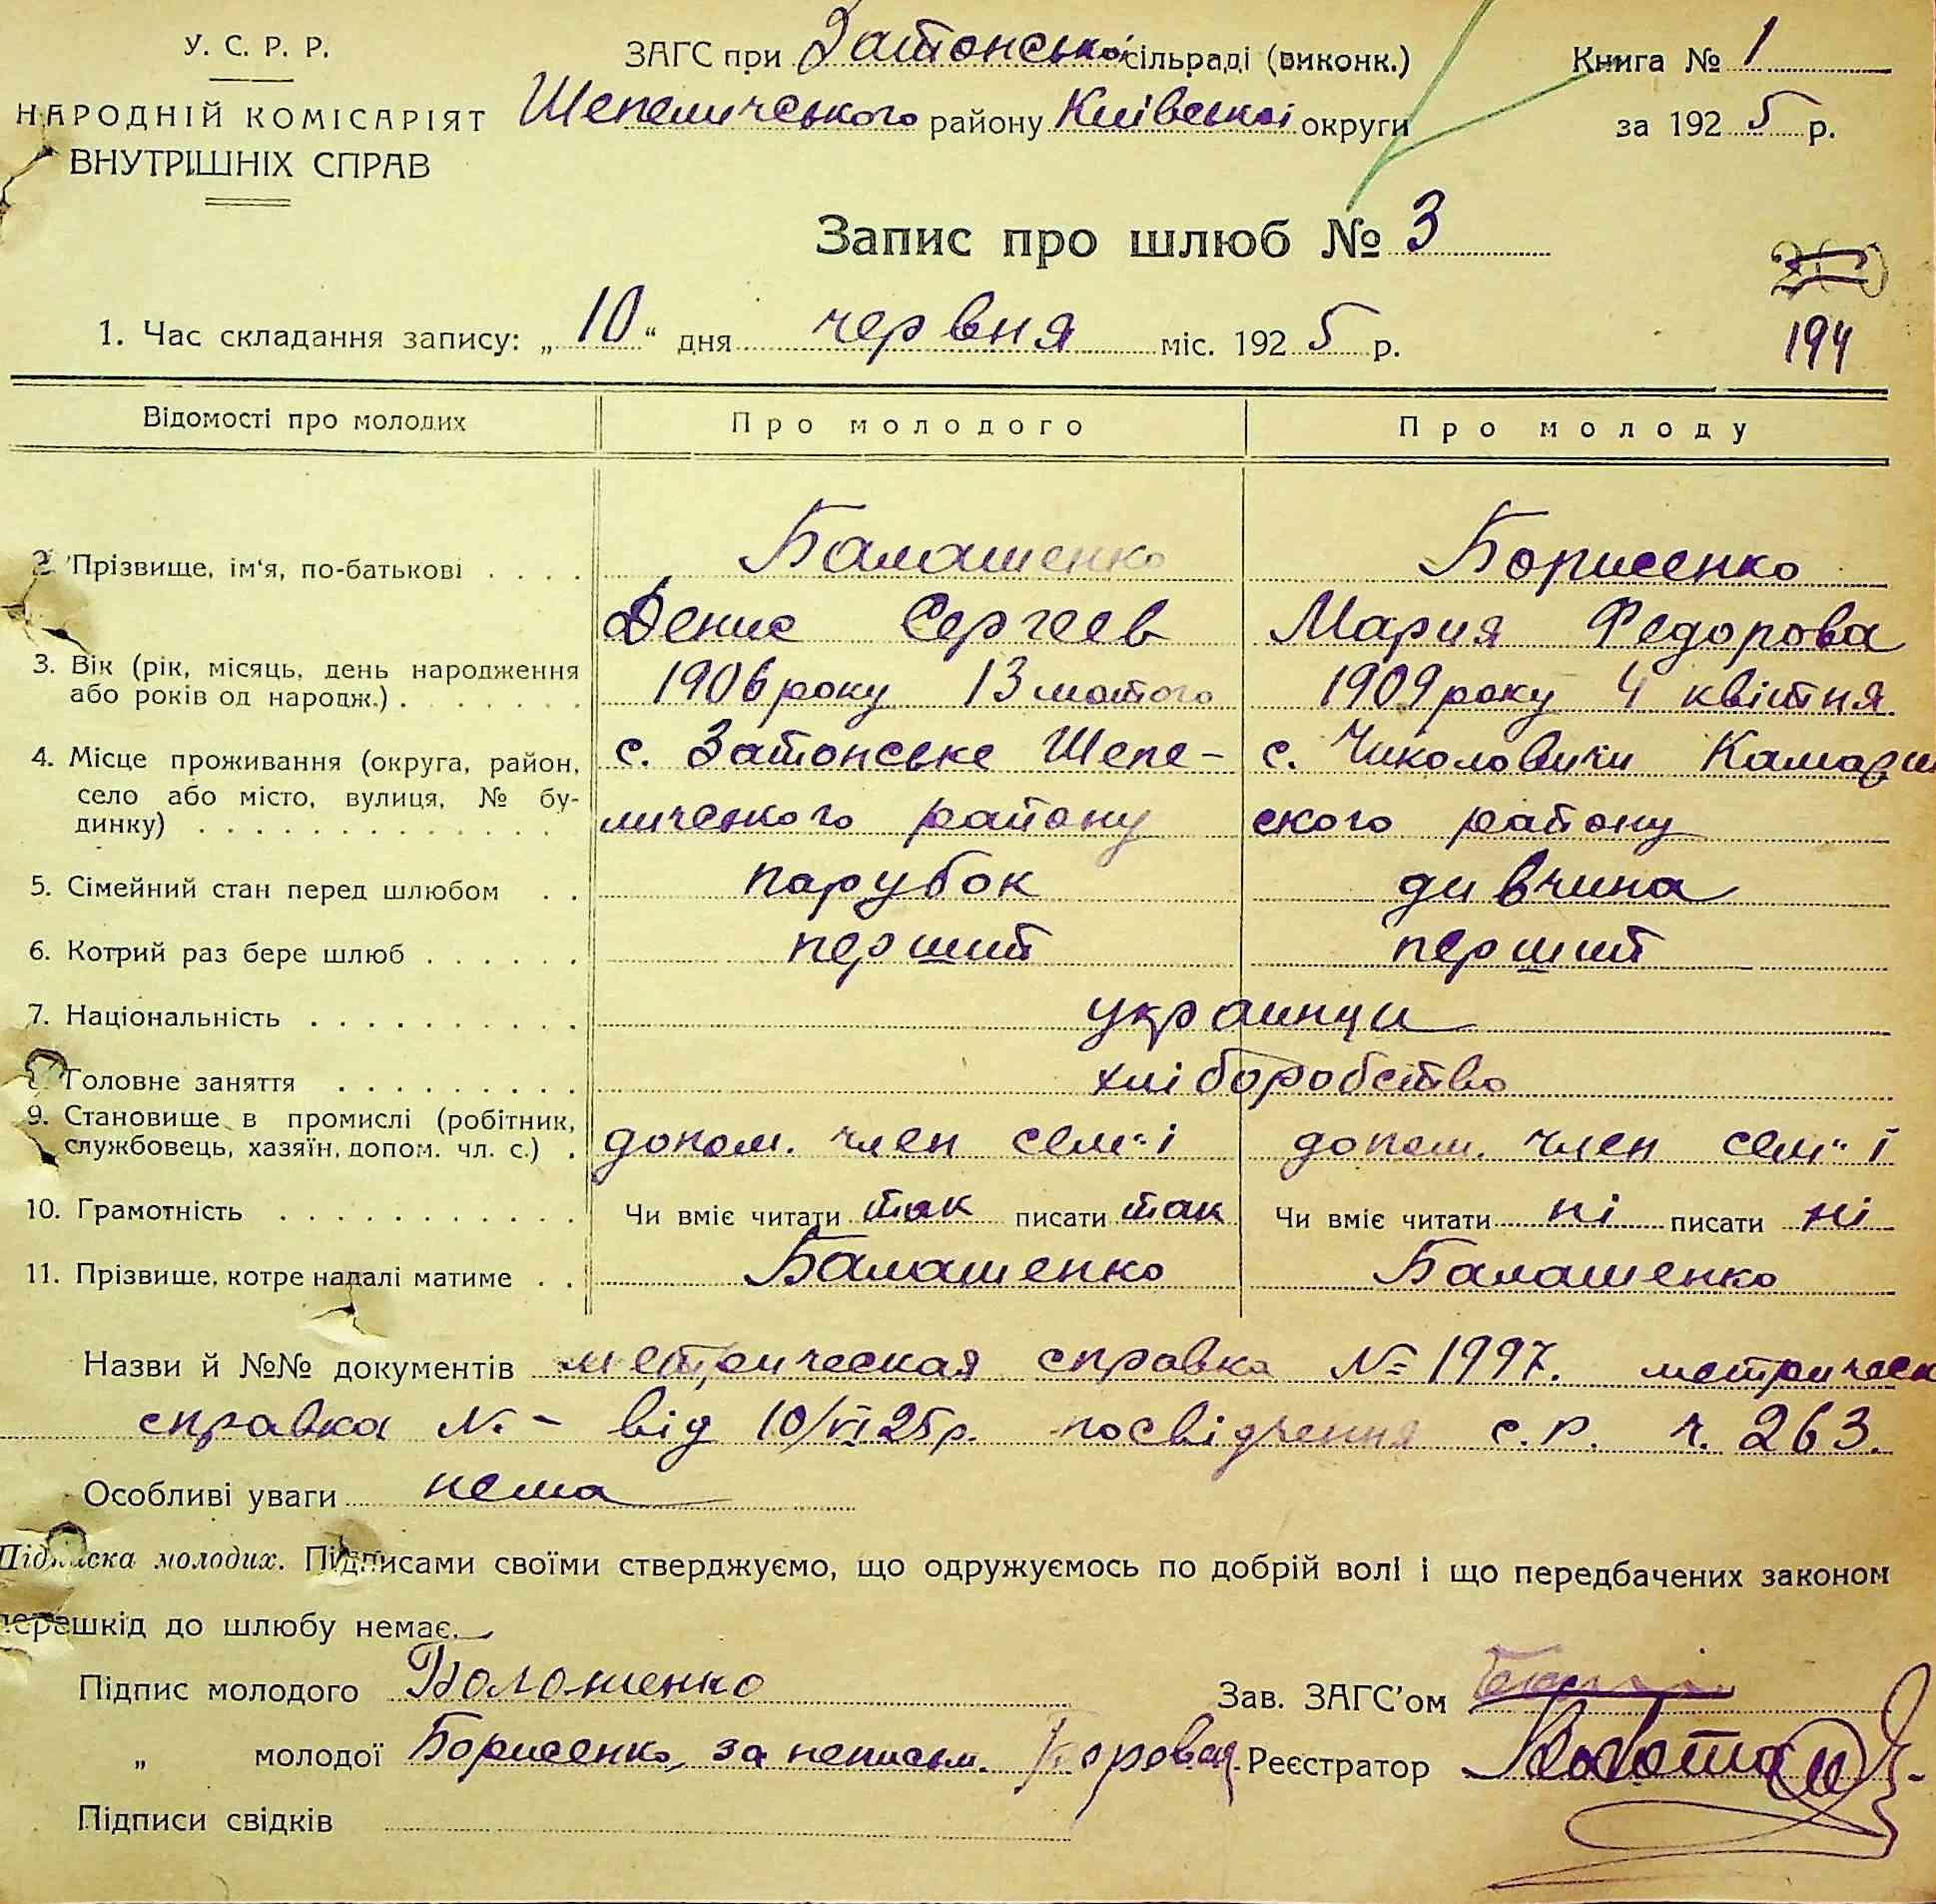 У. С. Р. Р.
НАРОДНІЙ КОМІСАРІЯТ
ВНУТРІШНІХ СПРАВ
ЗАГС при Затонській сільраді (виконк.)
Шепеличського району Київської округи
Книга № 1
за 1925 р.
Запис про шлюб № 3
194
1. Час складання запису: „10“ дня червня міс. 1925 р.
Відомості про молодих Про молодого Про молоду
2. Прізвище, ім‘я, по-батькові . . . . Балашенко Борисенко
Денис Сергеев Мария Федорова
3. Вік (рік, місяць, день народження
або років од народж.) . . . . . . . 1906 року 13 лютого 1909 року 4 квітня
4. Місце проживання (округа, район,
село або місто, вулиця, № бу-
динку) . . . . . . . . . . . . . с. Затонське Шепе-
личского району
с. Чиколовичи
ского району
5. Сімейний стан перед шлюбом . . парубок дивчина
6. Котрий раз бере шлюб . . . . . . перший перший
7. Національність . . . . . . . . . . украинци
8. Головне заняття . . . . . . . . . хліборобство
9. Становище в промислі (робітник,
службовець, хазяїн, допом. чл. с.) . допом. член сем"і допом. член сем"ї
10. Грамотність . . . . . . . . . . . Чи вміє читати так писати так Чи вміє читати ні писати ні
11. Прізвище, котре надалі матиме . . Балашенко Балашенко
Назви й №№ документів метрическая справка № 1997. метрическ
справка № - від 10/VI 25 р. посвідчення с.р. ч. 263.
Особливі уваги нема
Підписка молодих. Підписами своїми стверджуємо, що одружуємось по добрій волі і що передбачених законом
перешкід до шлюбу немає.
Підпис молодого Волошенко
Зав. ЗАГС’ом
„ молодої Борисенко, за неписьм.
Реєстратор
Підписи свідків